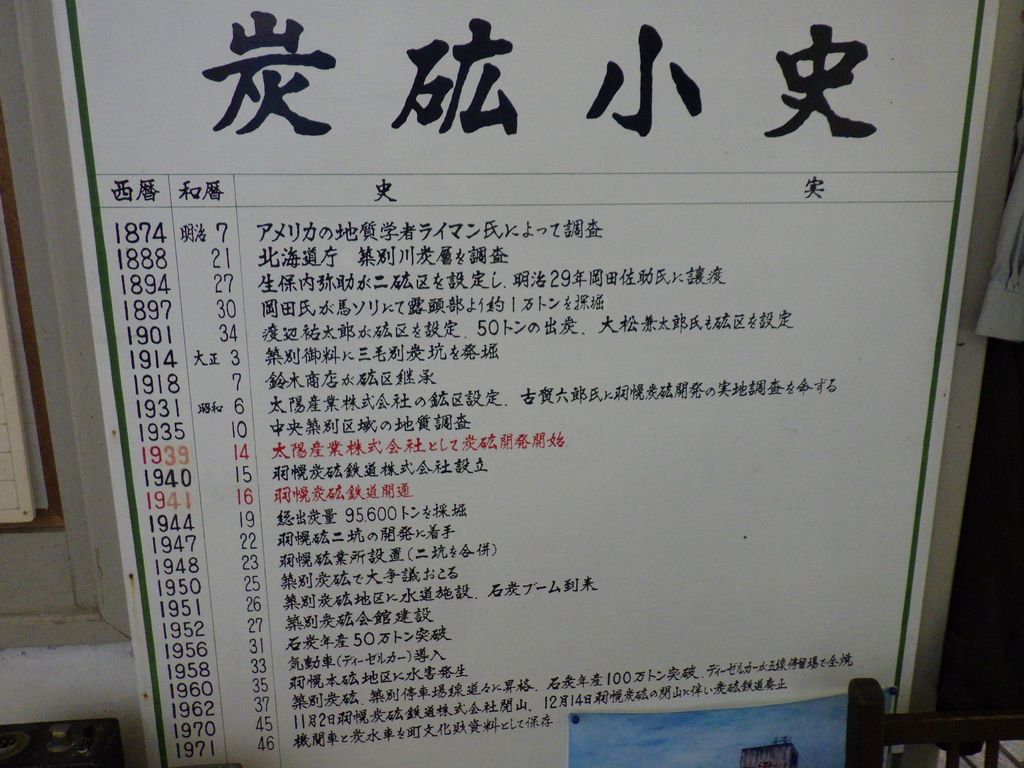 炭砿小史
西暦 和暦 史 実
1874 明治 7 アメリカの地質学者ライマン氏によって調査
1888 21 北海道庁 築別川炭層を調査
1894 27 生保内弥助が二砿区を設定し、明治29年岡田佐助氏に譲渡
1897 30 岡田氏が馬ソリにて露頭部より約1万トンを採掘
1901 34 渡辺祐太郎が砿区を設定、50トンの出炭、大松兼太郎氏も砿区を設定
1914 大正 3 築別御料に三毛別炭坑を発堀
1918 7 鈴木商店が砿区継承
1931 昭和 6 太陽産業株式会社の鉱区設定、古賀六郎氏に羽幌炭砿開発の実地調査を命ずる
1935 10 中央築別区域の地質調査
1939 14 太陽産業株式会社として炭砿開発開始
1940 15 羽幌炭砿鉄道株式会社設立
1941 16 羽幌炭砿鉄道開通
1944 19 総出炭量 95.600トンを採堀
1947 22 羽幌砿二坑の開発に着手
1948 23 羽幌砿業所設置(二坑を合併)
1950 25 築別炭砿で大争議おこる
1951 26 築別炭砿地区に水道施設、石炭ブーム到来
1952 27 築別炭砿会館建設
1956 31 石炭年産50万トン突破
1958 33 気動車(ディーゼルカー)導入
1960 35 羽幌本砿地区に水害発生
1962 37 築別炭砿、築別停車場線道々に昇格、石炭年産100万トン突破、ディーゼルカーが五線停留場で全焼
1970 45 11月2日羽幌炭砿鉄道株式会社閉山、12月14日羽幌炭砿の閉山に伴い炭砿鉄道廃止
1971 46 機関車と炭水車を町文化財資料として保存